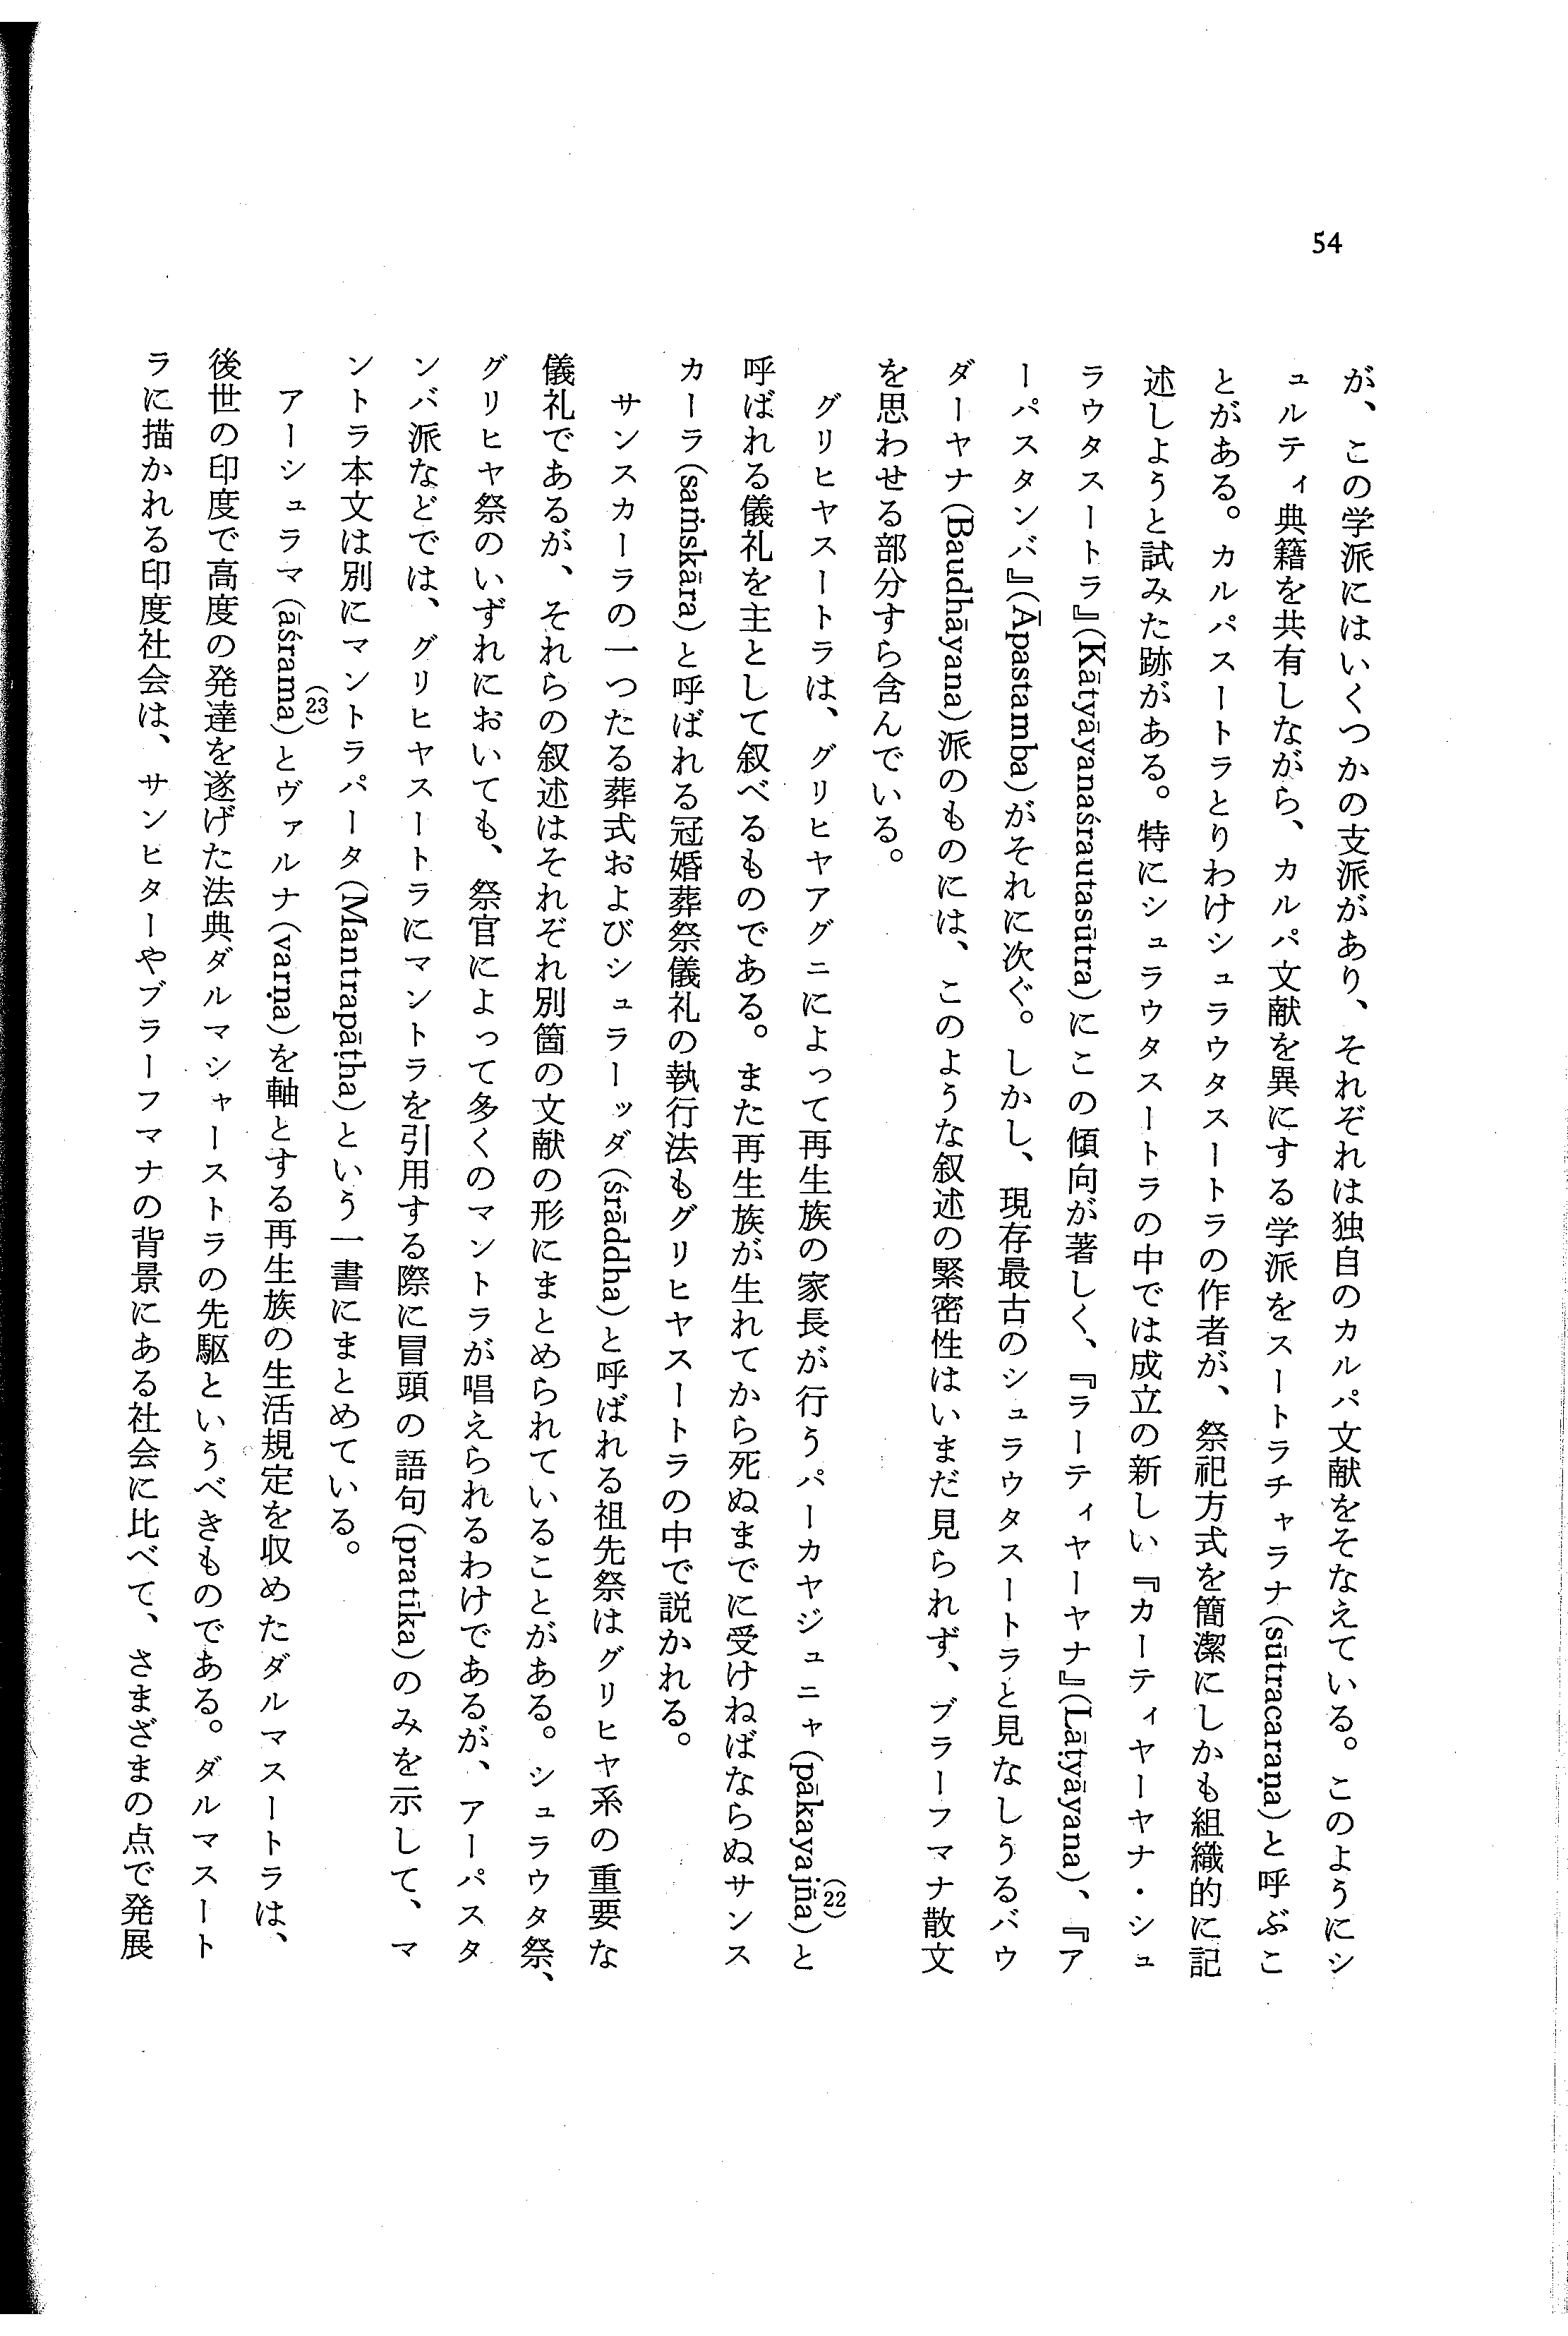 54
が、この学派にはいくつかの支派があり、それぞれは独自のカルパ文献をそなえている。このようにシ
ュルティ典籍を共有しながら、カルパ文献を異にする学派をスートラチャラナ(sūtracaraṇa)と呼ぶこ
とがある。カルパスートラとりわけシュラウタスートラの作者が、祭祀方式を簡潔にしかも組織的に記
述しようと試みた跡がある。特にシュラウタスートラの中では成立の新しい『カーティヤーヤナ・シュ
ラウタスートラ』(Kātyāyanaśrautasūtra)にこの傾向が著しく、『ラーティヤーヤナ』(Lāṭyāyana)、『ア
ーパスタンバ』(Āpastamba)がそれに次ぐ。しかし、現存最古のシュラウタスートラと見なしうるバウ
ダーヤナ(Baudhāyana)派のものには、このような叙述の緊密性はいまだ見られず、ブラーフマナ散文
を思わせる部分すら含んでいる。
グリヒヤスートラは、グリヒヤアグニによって再生族の家長が行うパーカヤジュニャ(pākayajña)(22)と
呼ばれる儀礼を主として叙べるものである。また再生族が生れてから死ぬまでに受けねばならぬサンス
カーラ(saṁskāra)と呼ばれる冠婚葬祭儀礼の執行法もグリヒヤスートラの中で説かれる。
サンスカーラの一つたる葬式およびシュラーッダ(śrāddha)と呼ばれる祖先祭はグリヒヤ系の重要な
儀礼であるが、それらの叙述はそれぞれ別箇の文献の形にまとめられていることがある。シュラウタ祭、
グリヒヤ祭のいずれにおいても、祭官によって多くのマントラが唱えられるわけであるが、アーパスタ
ンバ派などでは、グリヒヤスートラにマントラを引用する際に冒頭の語句(pratīka)のみを示して、マ
ントラ本文は別にマントラパータ(Mantrapāṭha)という一書にまとめている。
アーシュラマ(āśrama)(23)とヴァルナ(varṇa)を軸とする再生族の生活規定を収めたダルマスートラは、
後世の印度で高度の発達を遂げた法典ダルマシャーストラの先駆というべきものである。ダルマスート
ラに描かれる印度社会は、サンヒターやブラーフマナの背景にある社会に比べて、さまざまの点で発展